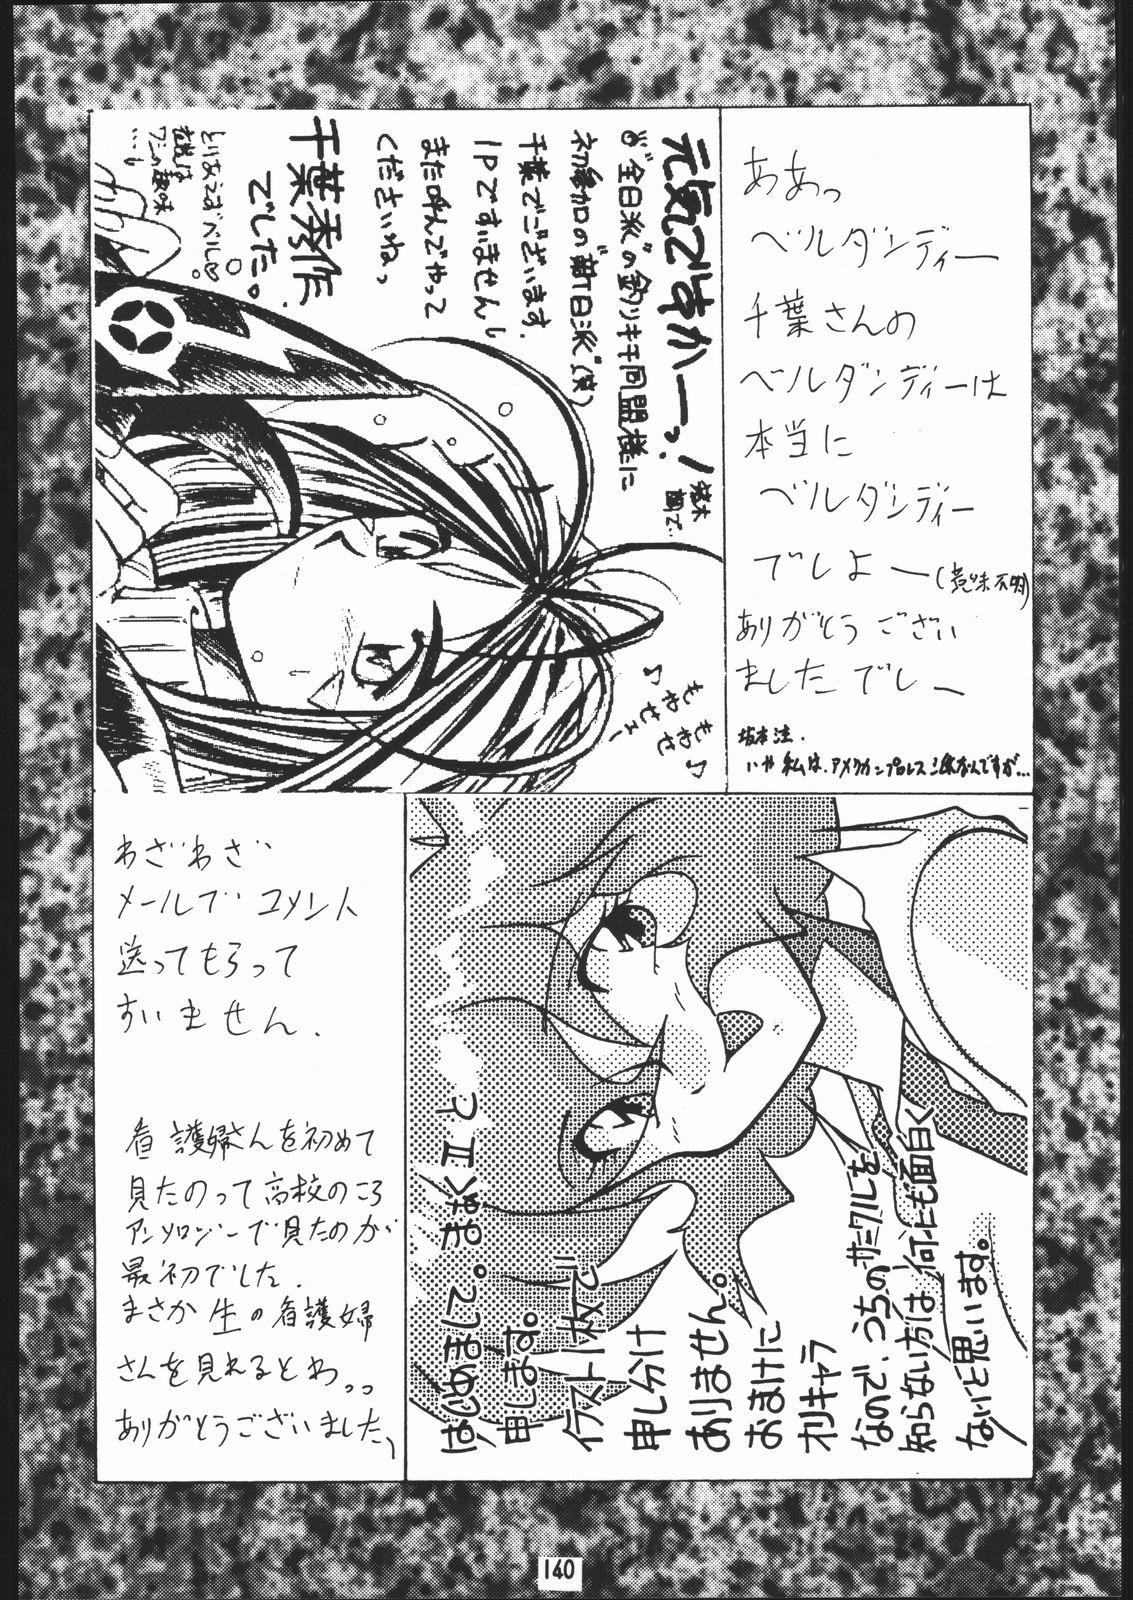 元気ですかーっ!
"全日派"の釣りキチ同盟様に
初参加の"新日派"(笑)
千葉でございます。
1Pですいませんし
また呼んでやって
くださいねっ
千葉秀作
でした。
とりあえずベル♡
ああっ
ベルダンディー
千葉さんの
ベルダンディーは
本当に
ベルダンディー
でしよー(意味不明)
ありがとうござい
ましたでしー
坂本注.
いや私は、アメリカンプロレス派なんですが…
♪もやせェー
もやせ♪
わざわざ
メールで コメント
送ってもらって
すいません.
看護婦さんを初めて
見たのって高校のころ
アンソロジーで見たのが
最初でした.
まさか生の看護婦
さんを見れるとわっっ
ありがとうございました
はじめまして。
申します。
イラスト一枚で
申し分け
ありません。
おまけに
オリキャラ
なので、うちのサークルを
知らない方は何にも面白く
ないと思います。
140